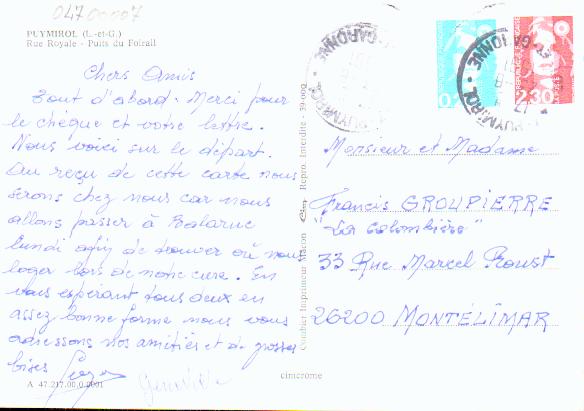 04700007
PUYMIROL (L.-et-G.)
Rue Royale - Puits du Foirail
Chers Amis
Tout d'abord. Merci pour
le chèque et votre lettre.
Nous voici sur le départ.
Au reçu de cette carte nous
serons chez nous car nous
allons passer à Balaruc
lundi afin de trouver où nous
loger lors de notre cure. En
vous espérant tous deux en
assez bonne forme nous vous
adressons nos amitiés et de grosses
bises
A 47.217.00.0.0001
cimcrome
Combier Imprimeur Mâcon Repro. Interdite - 39 009
PUYMIROL LOT-ET-GARONNE
0,
2,30
PUYMIROL ET-GARONNE
Monsieur et Madame
Francis GROUPIERRE
"La Colombière"
33 Rue Marcel Proust
26200 MONTÉLIMAR